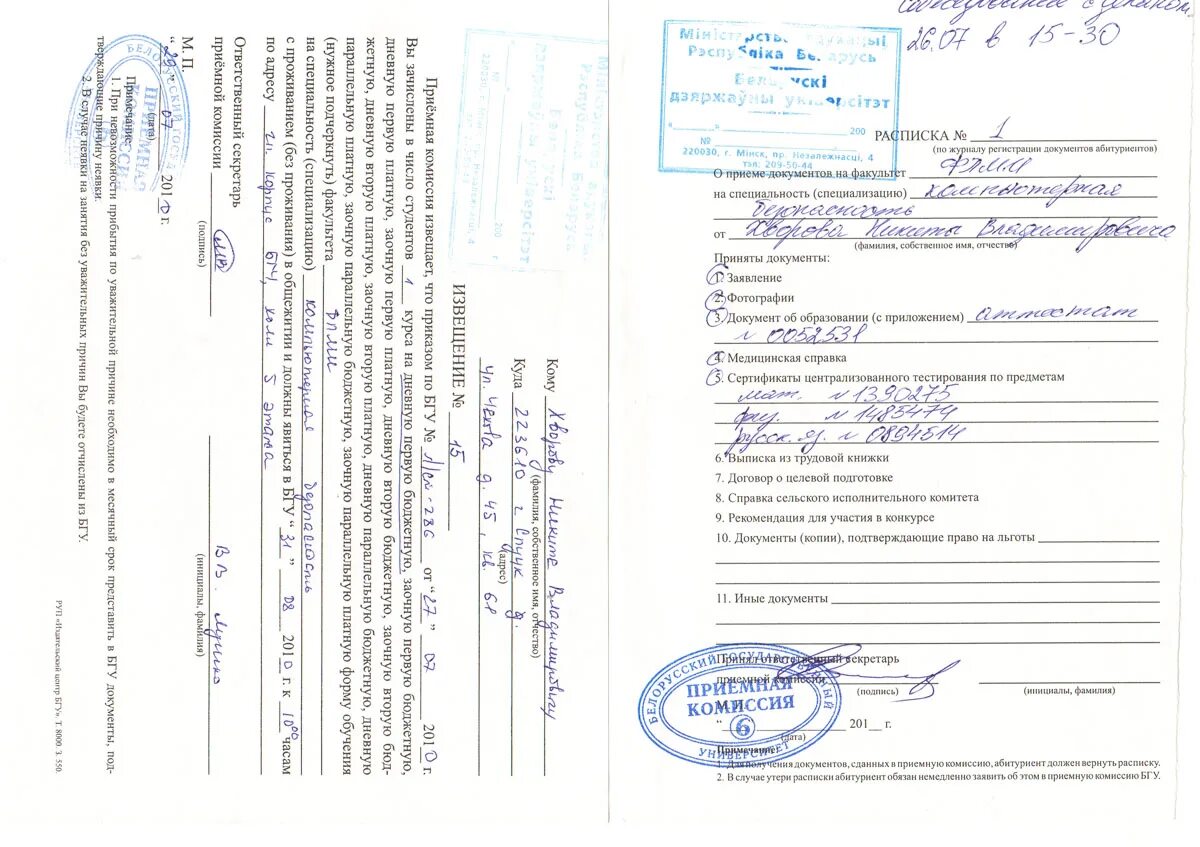 ИЗВЕЩЕНИЕ № 15
Кому Хворову Никите Владимировичу
(фамилия, собственное имя, отчество)
Куда 223610 г. Слуцк
(адрес)
ул. Чехова д. 45, кв. 61
Приёмная комиссия извещает, что приказом по БГУ № от “27” 07 2010 г.
Вы зачислены в число студентов 1 курса на дневную первую бюджетную, заочную первую бюджетную,
дневную первую платную, заочную первую платную, дневную вторую бюджетную, заочную вторую бюд-
жетную, дневную вторую платную, заочную вторую платную, дневную параллельную бюджетную, дневную
параллельную платную, заочную параллельную бюджетную, заочную параллельную платную форму обучения
(нужное подчеркнуть) факультета ФПМИ
на специальность (специализацию) компьютерная безопасность
с проживанием (без проживания) в общежитии и должны явиться в БГУ “31” 08 2010 г. к 10⁰⁰ часам
по адресу гл. корпус БГУ, холл 5 этажа
Ответственный секретарь
приёмной комиссии
(подпись)
(инициалы, фамилия)
М.П.
“29” 07 2010 г.
(дата)
Примечание:
1. При невозможности прибытия по уважительной причине необходимо в месячный срок представить в БГУ документы, под-
тверждающие причину неявки.
2. В случае неявки на занятия без уважительных причин Вы будете отчислены из БГУ.
РУП «Издательский центр БГУ». Т. 8000. З. 550.
26.07 в 15-30
Міністэрства адукацыі
Рэспубліка Беларусь
Беларускі
дзяржаўны універсітэт
“ ” 200
№
220030, г. Мінск, пр. Незалежнасці, 4
тэл: 209-50-44
РАСПИСКА № 1
(по журналу регистрации документов абитуриентов)
О приеме документов на факультет ФПМИ
на специальность (специализацию) компьютерная
безопасность
от Хворова Никиты Владимировича
(фамилия, собственное имя, отчество)
Приняты документы:
1. Заявление
2. Фотографии
3. Документ об образовании (с приложением) аттестат
№ 0052531
4. Медицинская справка
5. Сертификаты централизованного тестирования по предметам
мат. № 1390275
физ. № 1485474
русск. яз. № 0894514
6. Выписка из трудовой книжки
7. Договор о целевой подготовке
8. Справка сельского исполнительного комитета
9. Рекомендация для участия в конкурсе
10. Документы (копии), подтверждающие право на льготы
11. Иные документы
Принял ответственный секретарь
приемной комиссии
(подпись)
(инициалы, фамилия)
М.П.
“ ” 201 г.
(дата)
БЕЛОРУССКИЙ ГОСУДАРСТВЕННЫЙ УНИВЕРСИТЕТ
ПРИЕМНАЯ
КОМИССИЯ
6
Примечание:
1. Для получения документов, сданных в приемную комиссию, абитуриент должен вернуть расписку.
2. В случае утери расписки абитуриент обязан немедленно заявить об этом в приемную комиссию БГУ.